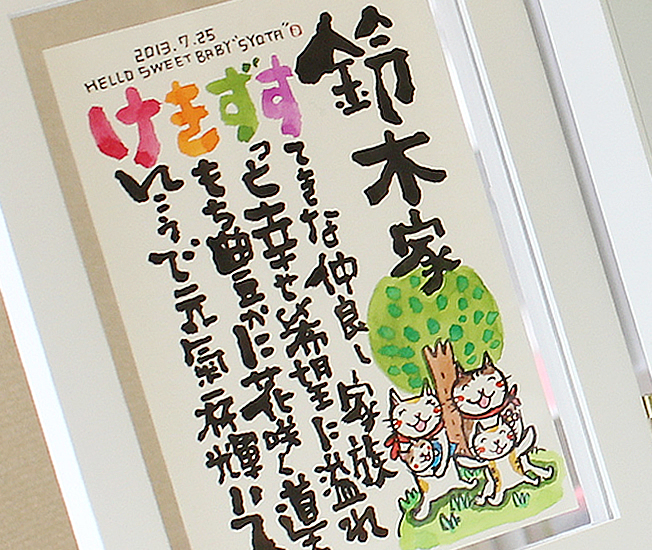 2013.7.25
HELLO SWEET BABY "SYOTA"
鈴木家
すてきな仲良し家族
ずっと幸せ希望に溢れ
きもち豊かに花咲く道を
けんこうで元氣一杯輝いて